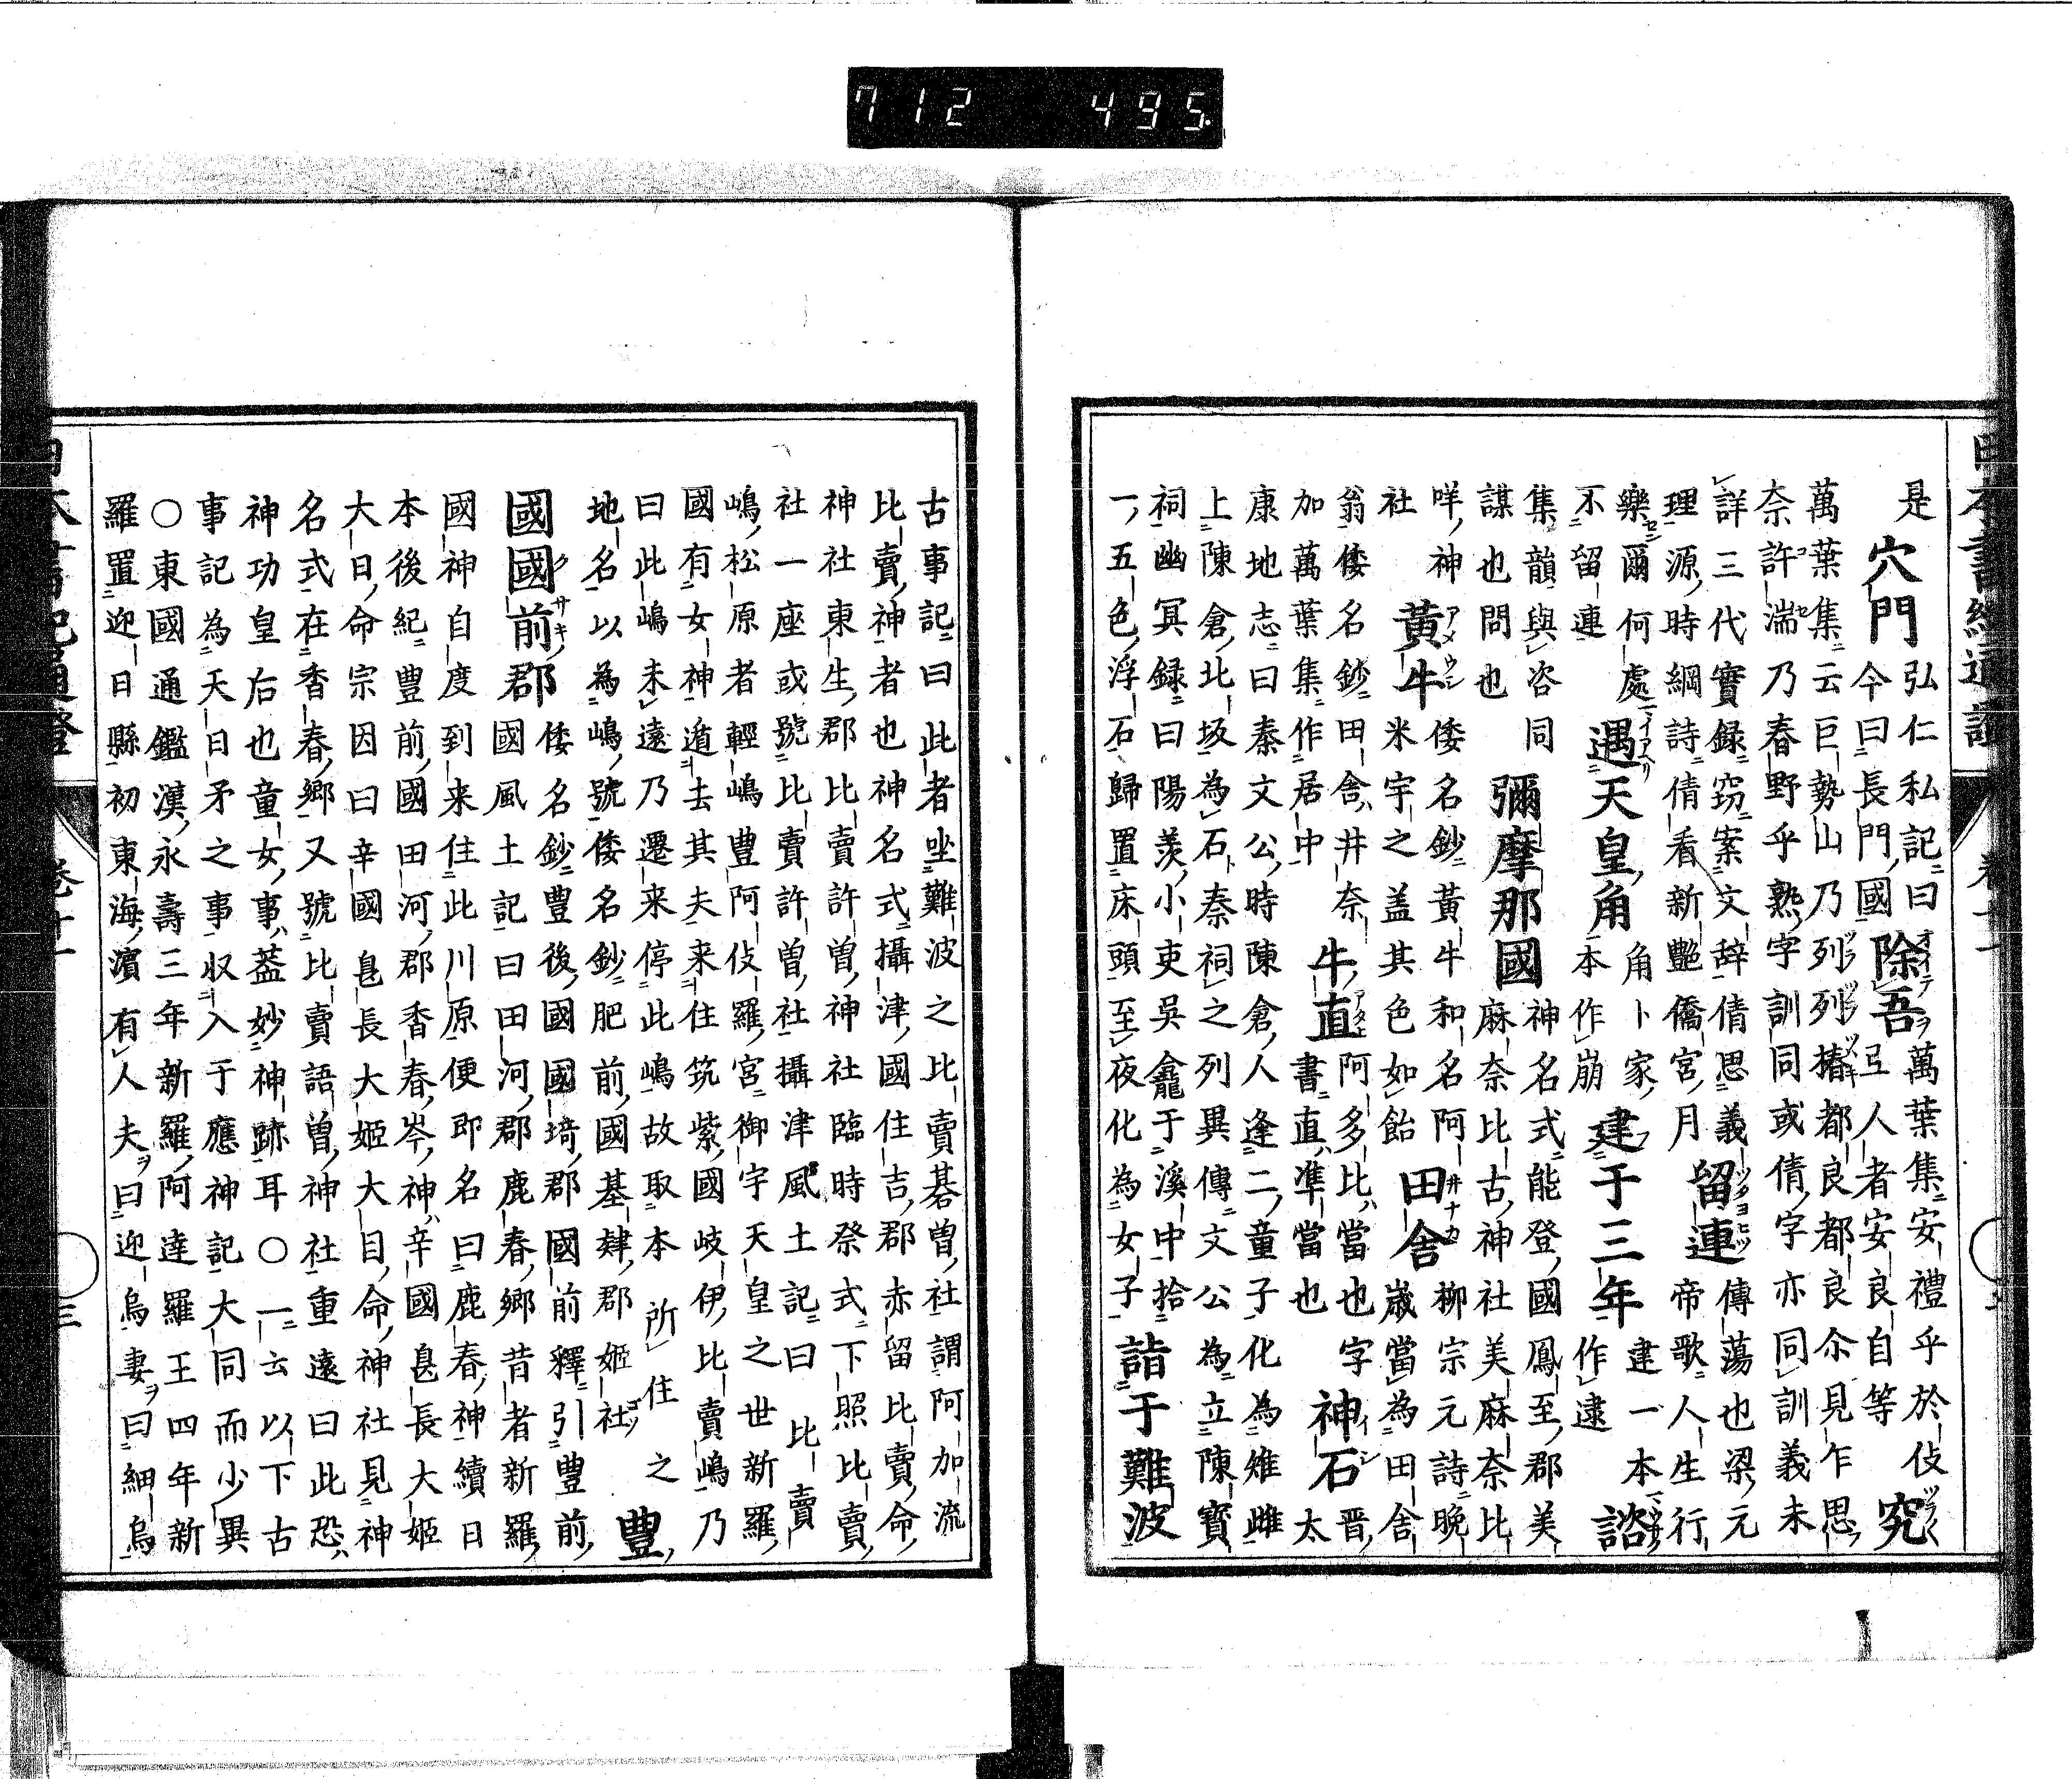 是
穴門
弘仁私記曰
今曰長門國
除吾
萬葉集安禮乎於伎
叵人者安良自等
究
萬葉集云巨勢山乃列列椿都良都良尓見乍思
奈許湍乃春野乎熟字訓同或倩字亦同訓義未
詳三代實録窃案文辞倩思義
理源時綱詩倩看新艶僑宮月
留連
傳蕩也梁元
帝歌人生行
樂爾何處
不留連
遇天皇角
角卜家
本作崩
建于三年
建一本
作逮
諮
集韻與咨同
謀也問也
彌摩那國
神名式能登國鳳至郡美
麻奈比古神社美麻奈比
咩神
社
黄牛
倭名鈔黄牛和名阿
米宇之盖其色如飴
田舍
柳宗元詩晩
歳當為田舍
翁倭名鈔田舍井奈
加萬葉集作居中
牛直
阿多比當也字
書直準當也
神石
晋太
康地志曰秦文公時陳倉人逢二童子化為雉雌
上陳倉北坂為石秦祠之列異傳文公為立陳寳
祠幽冥録曰陽羨小吏吳龕于溪中拾
一五色浮石歸置床頭至夜化為女子
詣于難波
古事記曰此者坐難波之比賣碁曽社謂阿加流
比賣神者也神名式攝津國住吉郡赤留比賣命
神社東生郡比賣許曽神社臨時祭式下照比賣
社一座或號比賣許曽社攝津風土記曰比賣
嶋松原者輕嶋豊阿伎羅宮御宇天皇之世新羅
國有女神遁去其夫来住筑紫國岐伊比賣嶋乃
曰此嶋未遠乃遷来停此嶋故取本所住之
地名以為嶋號倭名鈔肥前國基肄郡姫社
豊
國國前郡
倭名鈔豊後國國埼郡國前釋引豊前
國風土記曰田河郡鹿春鄉昔者新羅
國神自度到来住此川原便即名曰鹿春神續日
本後紀豊前國田河郡香春岑神辛國息長大姫
大目命宗因曰辛國息長大姫大目命神社見神
名式在香春鄉又號比賣語曽神社重遠曰此恐
神功皇后也童女事葢妙神跡耳○一云以下古
事記為天日矛之事収入于應神記大同而少異
○東國通鑑漢永壽三年新羅阿達羅王四年新
羅置迎日縣初東海濵有人夫曰迎烏妻曰細烏